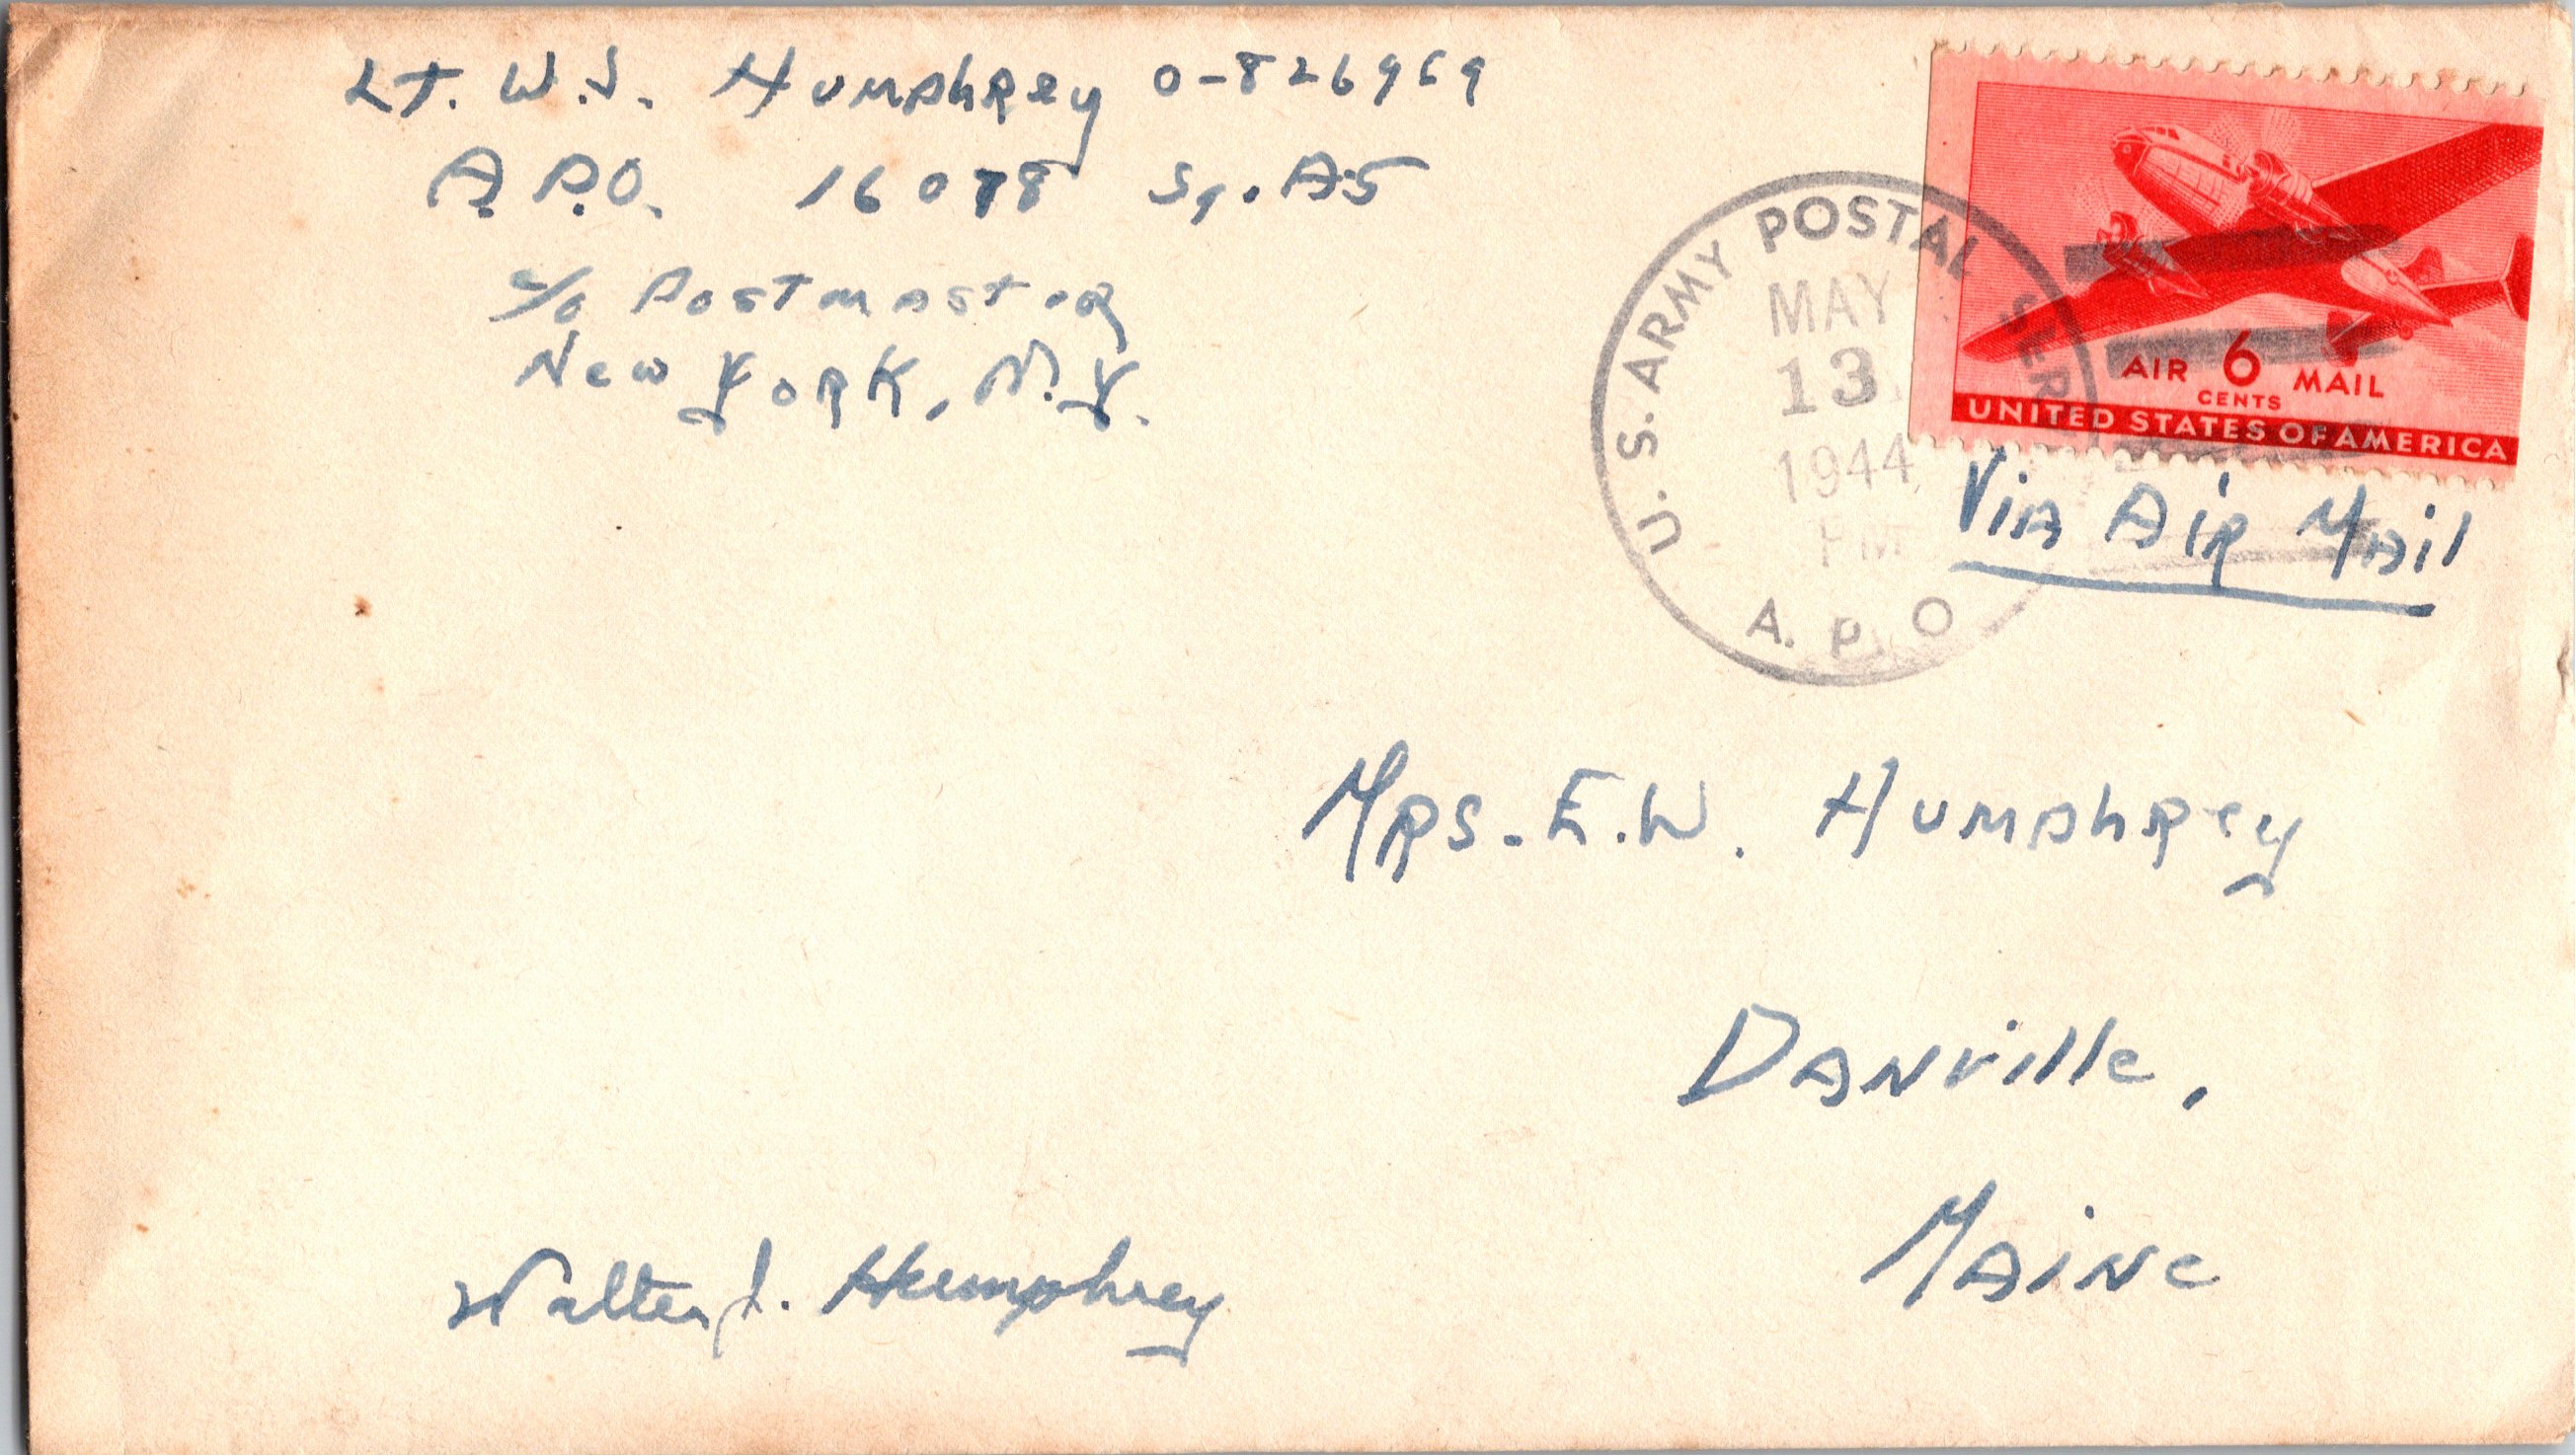 Lt. W.J. Humphrey O-826969
A.P.O. 16078 Sq. A5
c/o Postmaster
New York, N.Y.
U.S. ARMY POSTAL SER
MAY
13
1944
PM
A. P. O
AIR 6 MAIL
CENTS
UNITED STATES OF AMERICA
Via Air Mail
Mrs. E.W. Humphrey
Danville,
Maine
Walter J. Humphrey